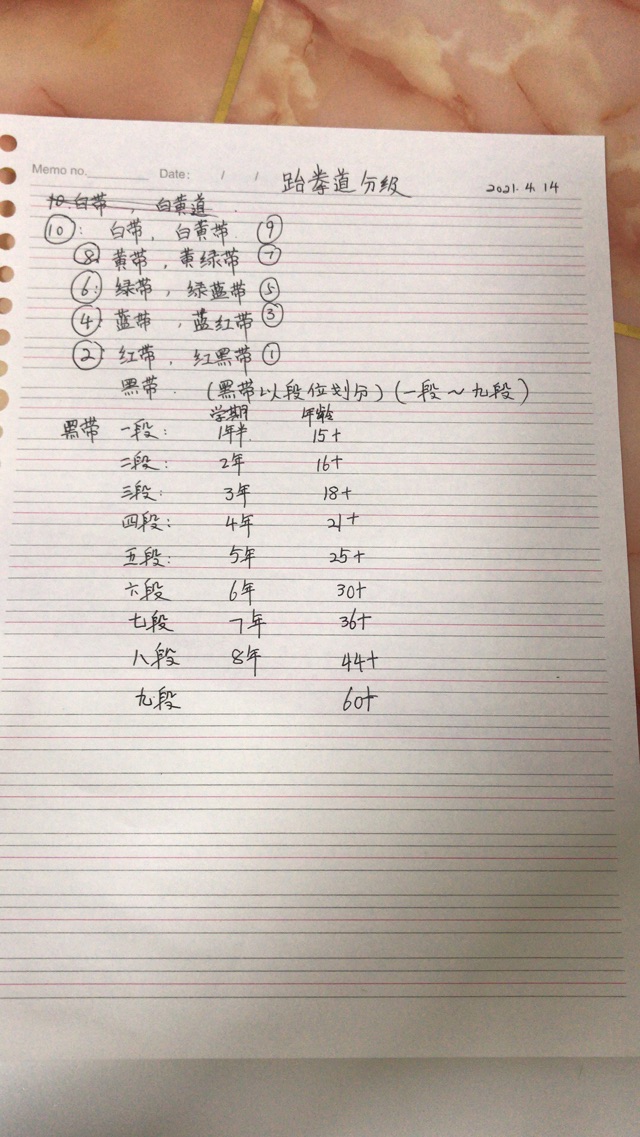 Memo no. Date: / /
跆拳道分级 2021.4.14
10 白带 , 白黄道
⑩: 白带, 白黄带 ⑨
⑧ 黄带, 黄绿带 ⑦
⑥: 绿带, 绿蓝带 ⑤
④ 蓝带, 蓝红带 ③
② 红带, 红黑带 ①
黑带. (黑带以段位划分)(一段~九段)
学期 年龄
黑带 一段: 1年半 15+
二段: 2年 16+
三段: 3年 18+
四段: 4年 21+
五段: 5年 25+
六段 6年 30+
七段 7年 36+
八段 8年 44+
九段 60+